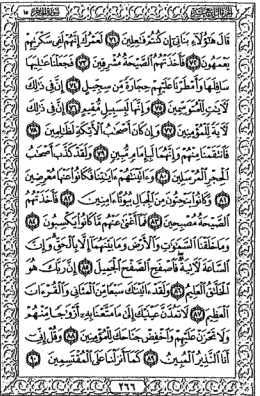 الجزء الرابع عشر سورة الحجر ١٥
قَالَ هَٰٓؤُلَآءِ بَنَاتِىٓ إِن كُنتُمْ فَٰعِلِينَ ٧١ لَعَمْرُكَ إِنَّهُمْ لَفِى سَكْرَتِهِمْ
يَعْمَهُونَ ٧٢ فَأَخَذَتْهُمُ ٱلصَّيْحَةُ مُشْرِقِينَ ٧٣ فَجَعَلْنَا عَٰلِيَهَا
سَافِلَهَا وَأَمْطَرْنَا عَلَيْهِمْ حِجَارَةً مِّن سِجِّيلٍ ٧٤ إِنَّ فِى ذَٰلِكَ
لَءَايَٰتٍ لِّلْمُتَوَسِّمِينَ ٧٥ وَإِنَّهَا لَبِسَبِيلٍ مُّقِيمٍ ٧٦ إِنَّ فِى ذَٰلِكَ
لَءَايَةً لِّلْمُؤْمِنِينَ ٧٧ وَإِن كَانَ أَصْحَٰبُ ٱلْأَيْكَةِ لَظَٰلِمِينَ ٧٨
فَٱنتَقَمْنَا مِنْهُمْ وَإِنَّهُمَا لَبِإِمَامٍ مُّبِينٍ ٧٩ وَلَقَدْ كَذَّبَ أَصْحَٰبُ
ٱلْحِجْرِ ٱلْمُرْسَلِينَ ٨٠ وَءَاتَيْنَٰهُمْ ءَايَٰتِنَا فَكَانُوا۟ عَنْهَا مُعْرِضِينَ
٨١ وَكَانُوا۟ يَنْحِتُونَ مِنَ ٱلْجِبَالِ بُيُوتًا ءَامِنِينَ ٨٢ فَأَخَذَتْهُمُ
ٱلصَّيْحَةُ مُصْبِحِينَ ٨٣ فَمَآ أَغْنَىٰ عَنْهُم مَّا كَانُوا۟ يَكْسِبُونَ ٨٤
وَمَا خَلَقْنَا ٱلسَّمَٰوَٰتِ وَٱلْأَرْضَ وَمَا بَيْنَهُمَآ إِلَّا بِٱلْحَقِّ وَإِنَّ
ٱلسَّاعَةَ لَءَاتِيَةٌ فَٱصْفَحِ ٱلصَّفْحَ ٱلْجَمِيلَ ٨٥ إِنَّ رَبَّكَ هُوَ
ٱلْخَلَّٰقُ ٱلْعَلِيمُ ٨٦ وَلَقَدْ ءَاتَيْنَٰكَ سَبْعًا مِّنَ ٱلْمَثَانِى وَٱلْقُرْءَانَ
ٱلْعَظِيمَ ٨٧ لَا تَمُدَّنَّ عَيْنَيْكَ إِلَىٰ مَا مَتَّعْنَا بِهِۦٓ أَزْوَٰجًا مِّنْهُمْ
وَلَا تَحْزَنْ عَلَيْهِمْ وَٱخْفِضْ جَنَاحَكَ لِلْمُؤْمِنِينَ ٨٨ وَقُلْ إِنِّىٓ
أَنَا ٱلنَّذِيرُ ٱلْمُبِينُ ٨٩ كَمَآ أَنزَلْنَا عَلَى ٱلْمُقْتَسِمِينَ ٩٠
٢٦٦